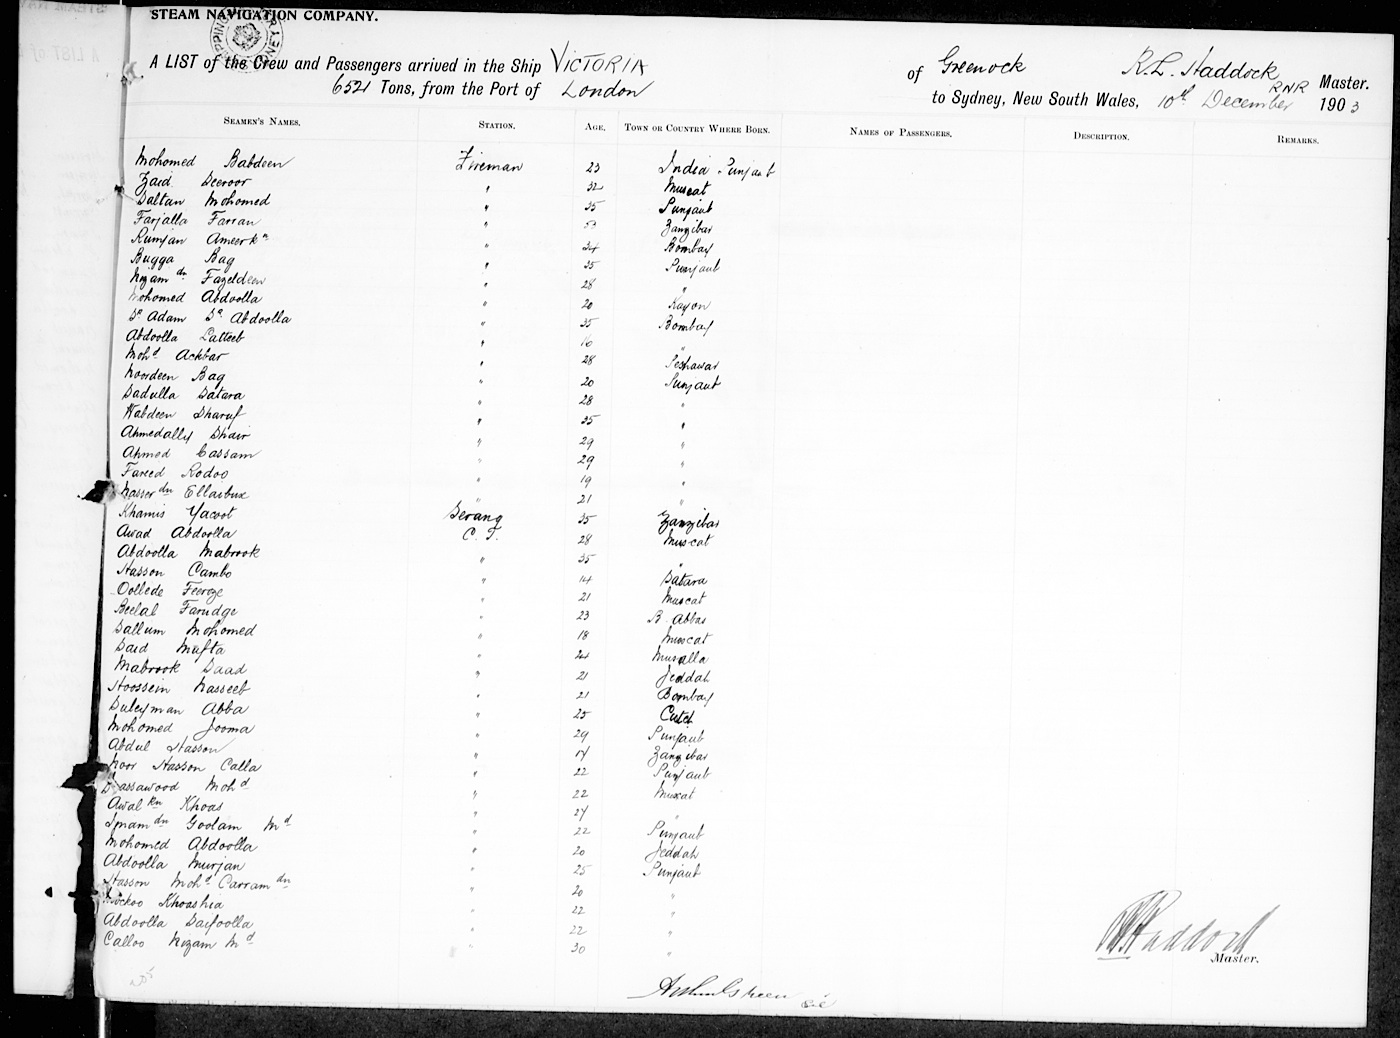 STEAM NAVIGATION COMPANY.
A LIST of the Crew and Passengers arrived in the Ship VICTORIA of Greenock R.L. Haddock RNR Master.
6521 Tons, from the Port of London to Sydney, New South Wales, 10th December 1903
SEAMEN'S NAMES. STATION. AGE. TOWN OR COUNTRY WHERE BORN. NAMES OF PASSENGERS. DESCRIPTION. REMARKS.
Mohomed Babdeen Fireman 23 India Punjaub
Zaid Seeroor " 32 Muscat
Saltan Mohomed " 35 Punjaub
Farjalla Farran " Zanzibar
Rumjan Ameerkn " 34 Bombay
Bugga Bag " 35 Punjaub
Nizam dn Fazeldeen " 28 "
Mohomed Abdoolla " 20
Sk Adam Sk Abdoolla " 35 Bombay
Abdoolla Latteeb " 16 "
Mohd Ackbar " 28 Peshawar
Noordeen Bag " 20 Punjaub
Sadulla Satara " 28 "
Habdeen Sharuf " 35 "
Ahmedally Shair " 29 "
Ahmed Cassam " 29 "
Fareed Rodoo " 19 "
Nasser dn Ellaibux " 21 "
Khamis Yacoot Serang 35 Zanzibar
Awad Abdoolla C. T. 28 Muscat
Abdoolla Mabrook " 35 "
Hasson Cambo " 14 Satara
Oollede Feeroze " 21 Muscat
Beelal Farudge " 23 B. Abbas
Sallum Mohomed " 18 Muscat
Said Mafta " 24
Mabrook Saad " 21 Jeddah
Hoossein Nasseeb " 21 Bombay
Suleyman Abba " 25 Cutch
Mohomed Jooma " 29 Punjaub
Abdul Hasson " 17 Zanzibar
Noor Hasson Calla " 22 Punjaub
Mohd " 22 Muscat
Awal kn Khoas " 27 "
Imam dn Goolam Md " 22 Punjaub
Mohomed Abdoolla " 20 Jeddah
Abdoolla Murjan " 25 Punjaub
Hasson Mohd Carram dn " 20 "
Khoashia " 22 "
Abdoolla Saifoolla " 22 "
Calloo Nizam Md " 30 "
RL Haddock
Master.